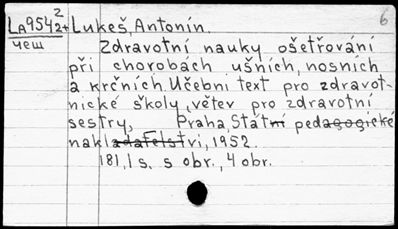 6
La954 2/2+ Lukeš, Antonín.
чеш Zdravotní nauky ošetřování
při chorobách ušních, nosních
a krčních. Učební text pro zdravot-
nické školy, větev pro zdravotní
sestry, Praha, Státní pedagogické
nakladatelství, 1952.
181,1 s. s obr., 4 obr.